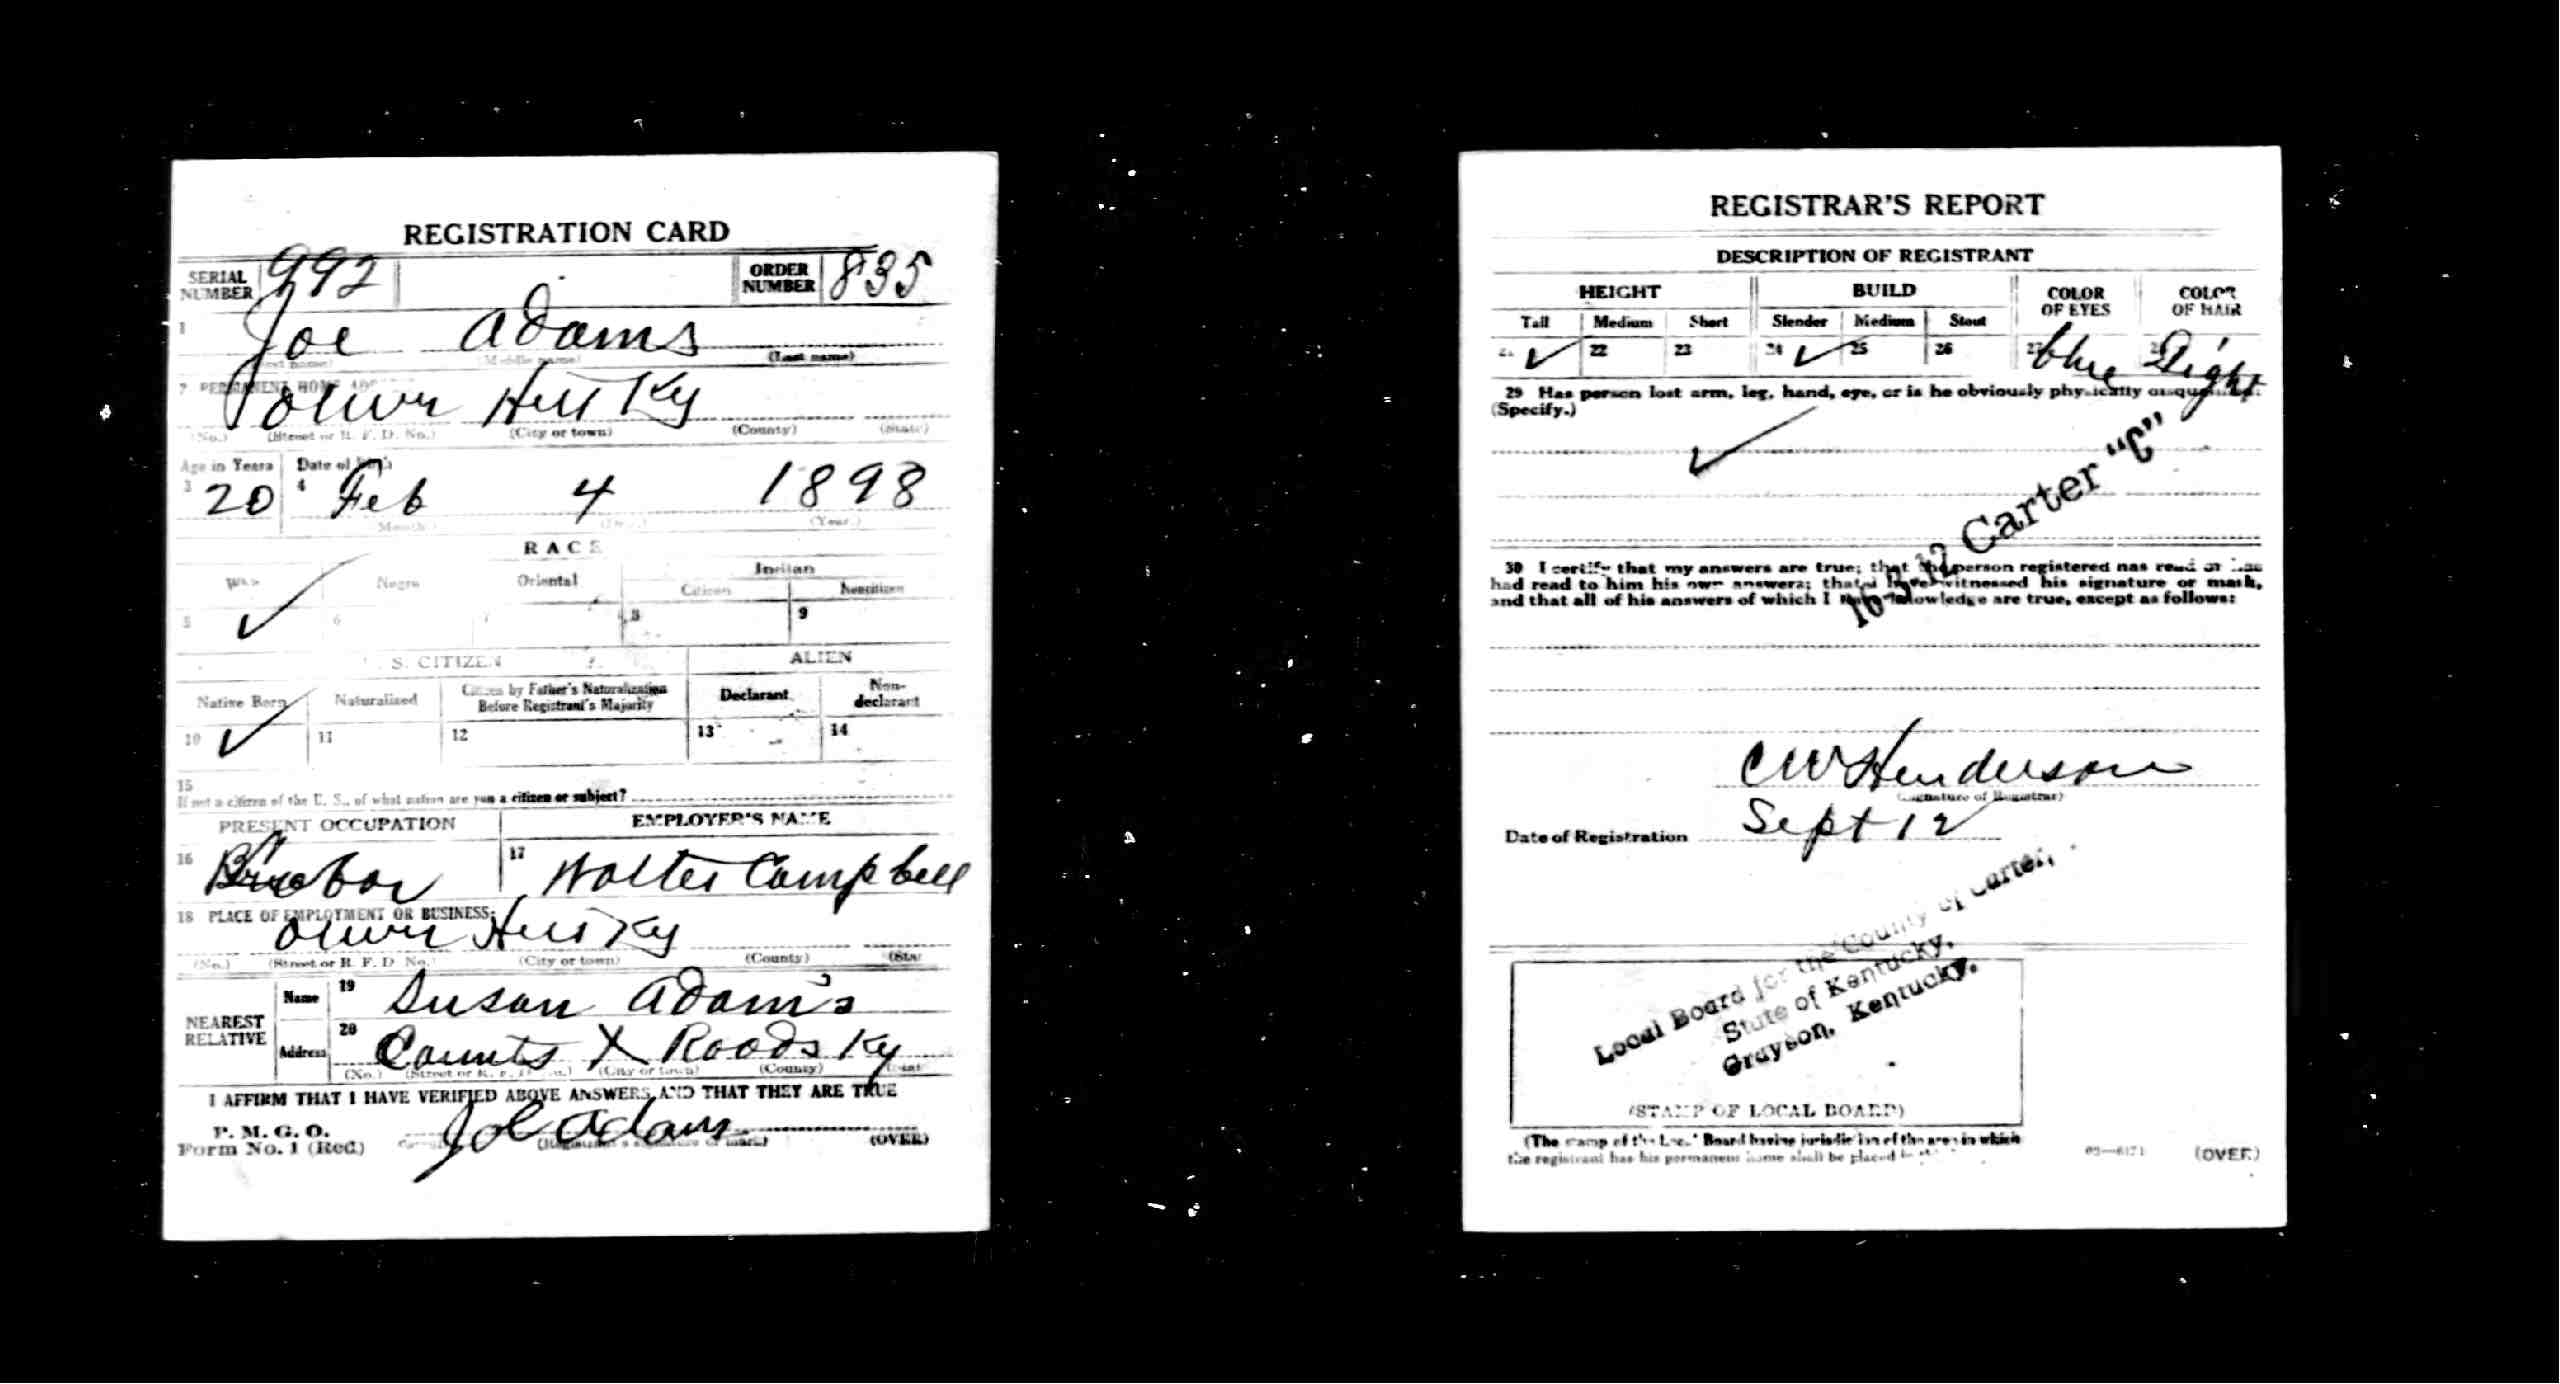 REGISTRATION CARD
SERIAL NUMBER 992 ORDER NUMBER 835
1 Joe Adams
(Middle name) (Last name)
2 PERMANENT HOME
Oliver Hill Ky
(No.) (Street or R. F. D. No.) (City or town) (County) (State)
Age in Years Date of Birth
3 20 4 Feb 4 1898
(Month.) (Day.) (Year.)
RACE
White Negro Oriental Indian
Citizen Noncitizen
5 ✓ 6 7 8 9
U. S. CITIZEN ALIEN
Native Born Naturalized Citizen by Father's Naturalization Before Registrant's Majority Declarant Non-declarant
10 ✓ 11 12 13 14
15
If not a citizen of the U. S., of what nation are you a citizen or subject?
PRESENT OCCUPATION EMPLOYER'S NAME
16 17 Walter Campbell
18 PLACE OF EMPLOYMENT OR BUSINESS:
Oliver Hill Ky
(No.) (Street or R. F. D. No.) (City or town) (County) (State)
NEAREST RELATIVE
Name 19 Susan Adams
Address 20 Counts X Roads Ky
(No.) (Street or R. F. D. No.) (City or town) (County) (State)
I AFFIRM THAT I HAVE VERIFIED ABOVE ANSWERS AND THAT THEY ARE TRUE
P. M. G. O.
Form No. 1 (Red) Joe Adams
(Registrant's signature or mark) (OVER)
REGISTRAR'S REPORT
DESCRIPTION OF REGISTRANT
HEIGHT BUILD COLOR OF EYES COLOR OF HAIR
Tall Medium Short Slender Medium Stout
21 ✓ 22 23 24 ✓ 25 26 27 blue 28 Light
29 Has person lost arm, leg, hand, eye, or is he obviously physically disqualified?
(Specify.)
✓
16-3-12 Carter "C"
30 I certify that my answers are true; that the person registered has read or has
had read to him his own answers; that I have witnessed his signature or mark,
and that all of his answers of which I have knowledge are true, except as follows:
C W Henderson
(Signature of Registrar)
Date of Registration Sept 12
Local Board for the County of Carter,
State of Kentucky,
Grayson, Kentucky.
(STAMP OF LOCAL BOARD)
(The stamp of the Local Board having jurisdiction of the area in which
the registrant has his permanent home shall be placed in
03—6171 (OVER)